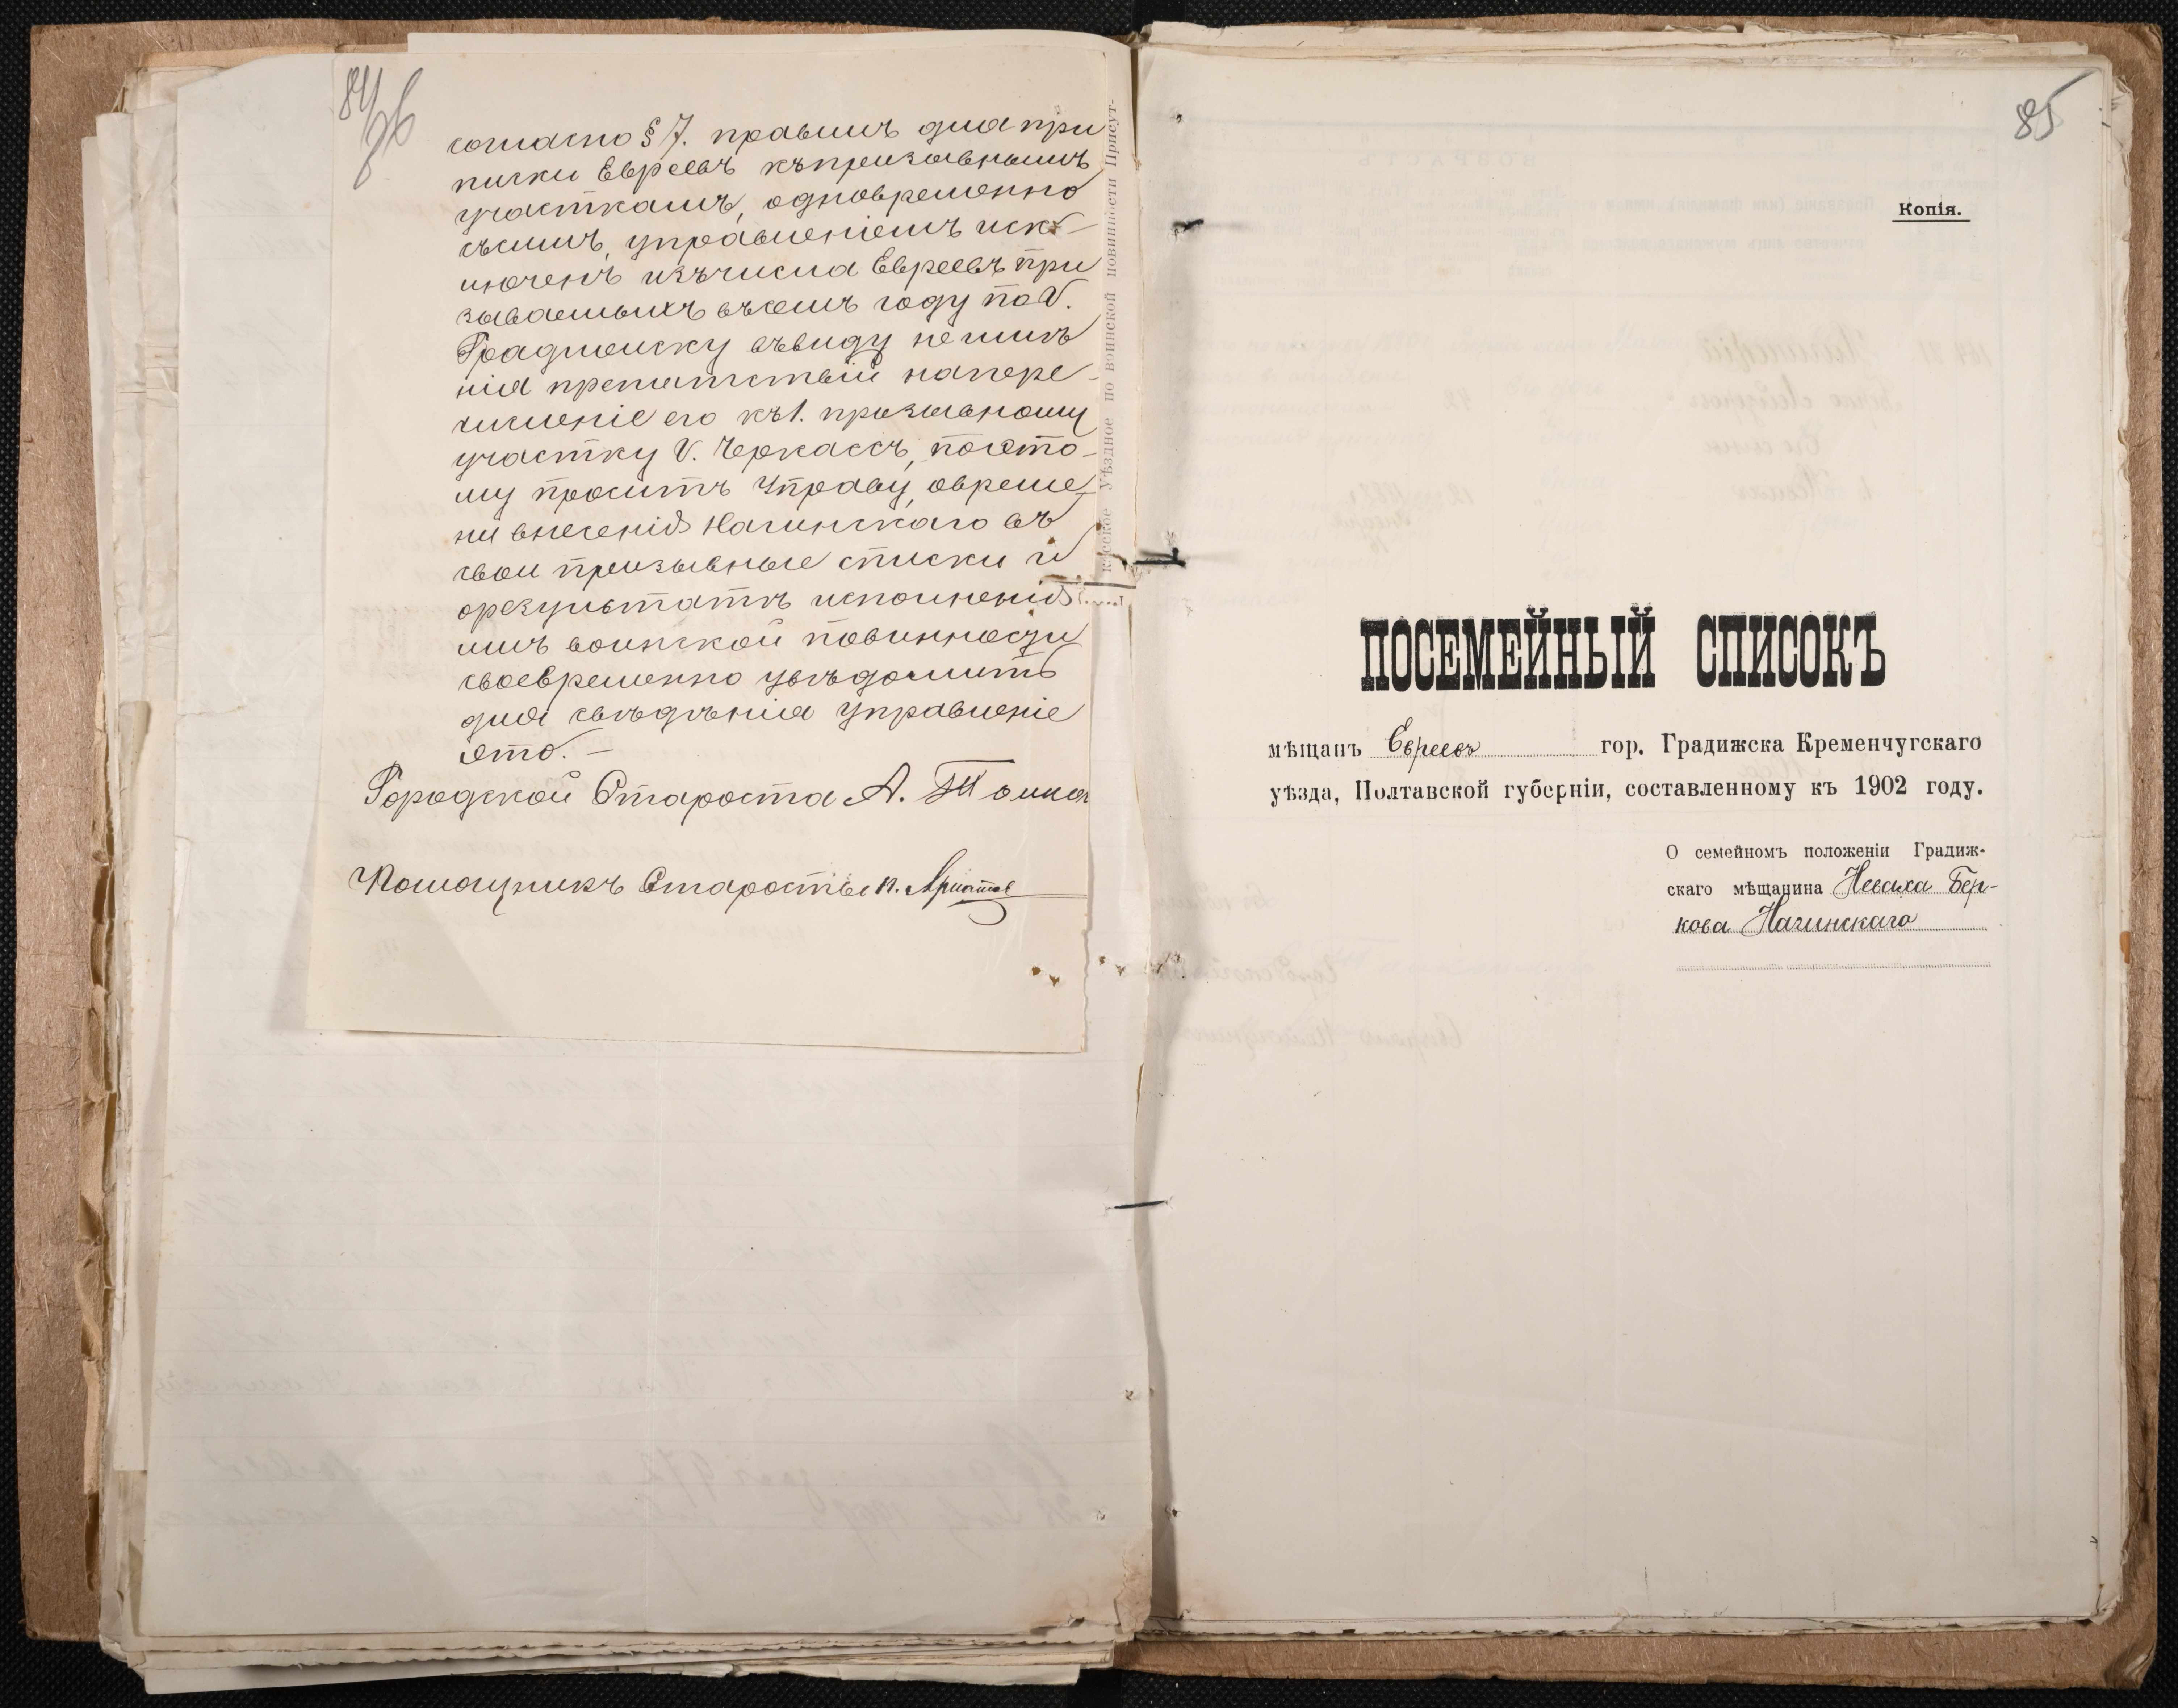 84
об
согласно § 7. правилъ для при
писки Евреевъ къ призывнымъ
участкамъ, одновременно
съ симъ, управленіемъ иск-
люченъ изъ числа Евреевъ при
зываемыхъ въ семъ году по г.
Градижску въ виду не имѣ
нія препятствій на пере-
численіе его къ 1. призывному
участку г. Черкассъ, поэто-
му проситъ Управу, о време-
ни внесенія Нагинскаго въ
свои призывные списки и
о результатѣ исполненія
имъ воинской повинности
своевременно увѣдомить
для свѣдѣнія управленіе
это. –
Городской Староста А.
Помощникъ Старосты П.
уѣздное по воинской повинности Присут-
85
Копія.
ПОСЕМЕЙНЫЙ СПИСОКЪ
мѣщанъ Евреевъ гор. Градижска Кременчугскаго
уѣзда, Полтавской губерніи, составленному къ 1902 году.
О семейномъ положеніи Градиж-
скаго мѣщанина Неваха Бер-
кова Нагинскаго